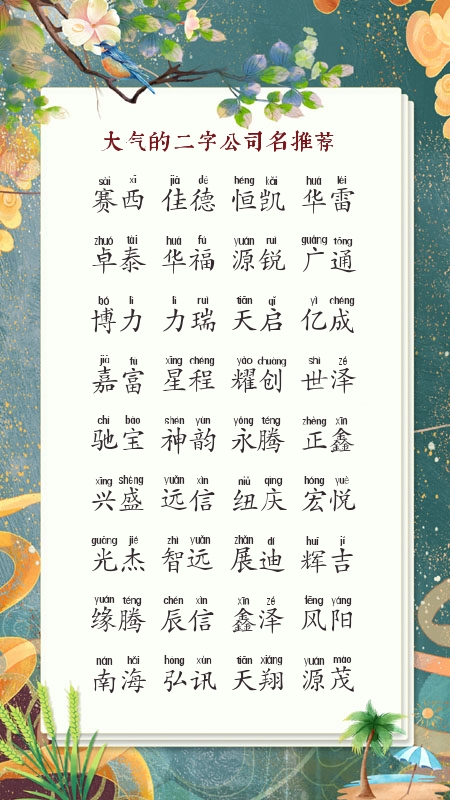 大气的二字公司名推荐
sài xī jiā dé héng kǎi huá léi
赛西 佳德 恒凯 华雷
zhuó tài huá fú yuán ruì guǎng tōng
卓泰 华福 源锐 广通
bó lì lì ruì tiān qǐ yì chéng
博力 力瑞 天启 亿成
jiā fù xīng chéng yào chuàng shì zé
嘉富 星程 耀创 世泽
chí bǎo shén yùn yǒng téng zhèng xīn
驰宝 神韵 永腾 正鑫
xīng shèng yuǎn xìn niǔ qìng hóng yuè
兴盛 远信 纽庆 宏悦
guāng jié zhì yuǎn zhǎn dí huī jí
光杰 智远 展迪 辉吉
yuán téng chén xìn xīn zé fēng yáng
缘腾 辰信 鑫泽 风阳
nán hǎi hóng xùn tiān xiáng yuán mào
南海 弘讯 天翔 源茂